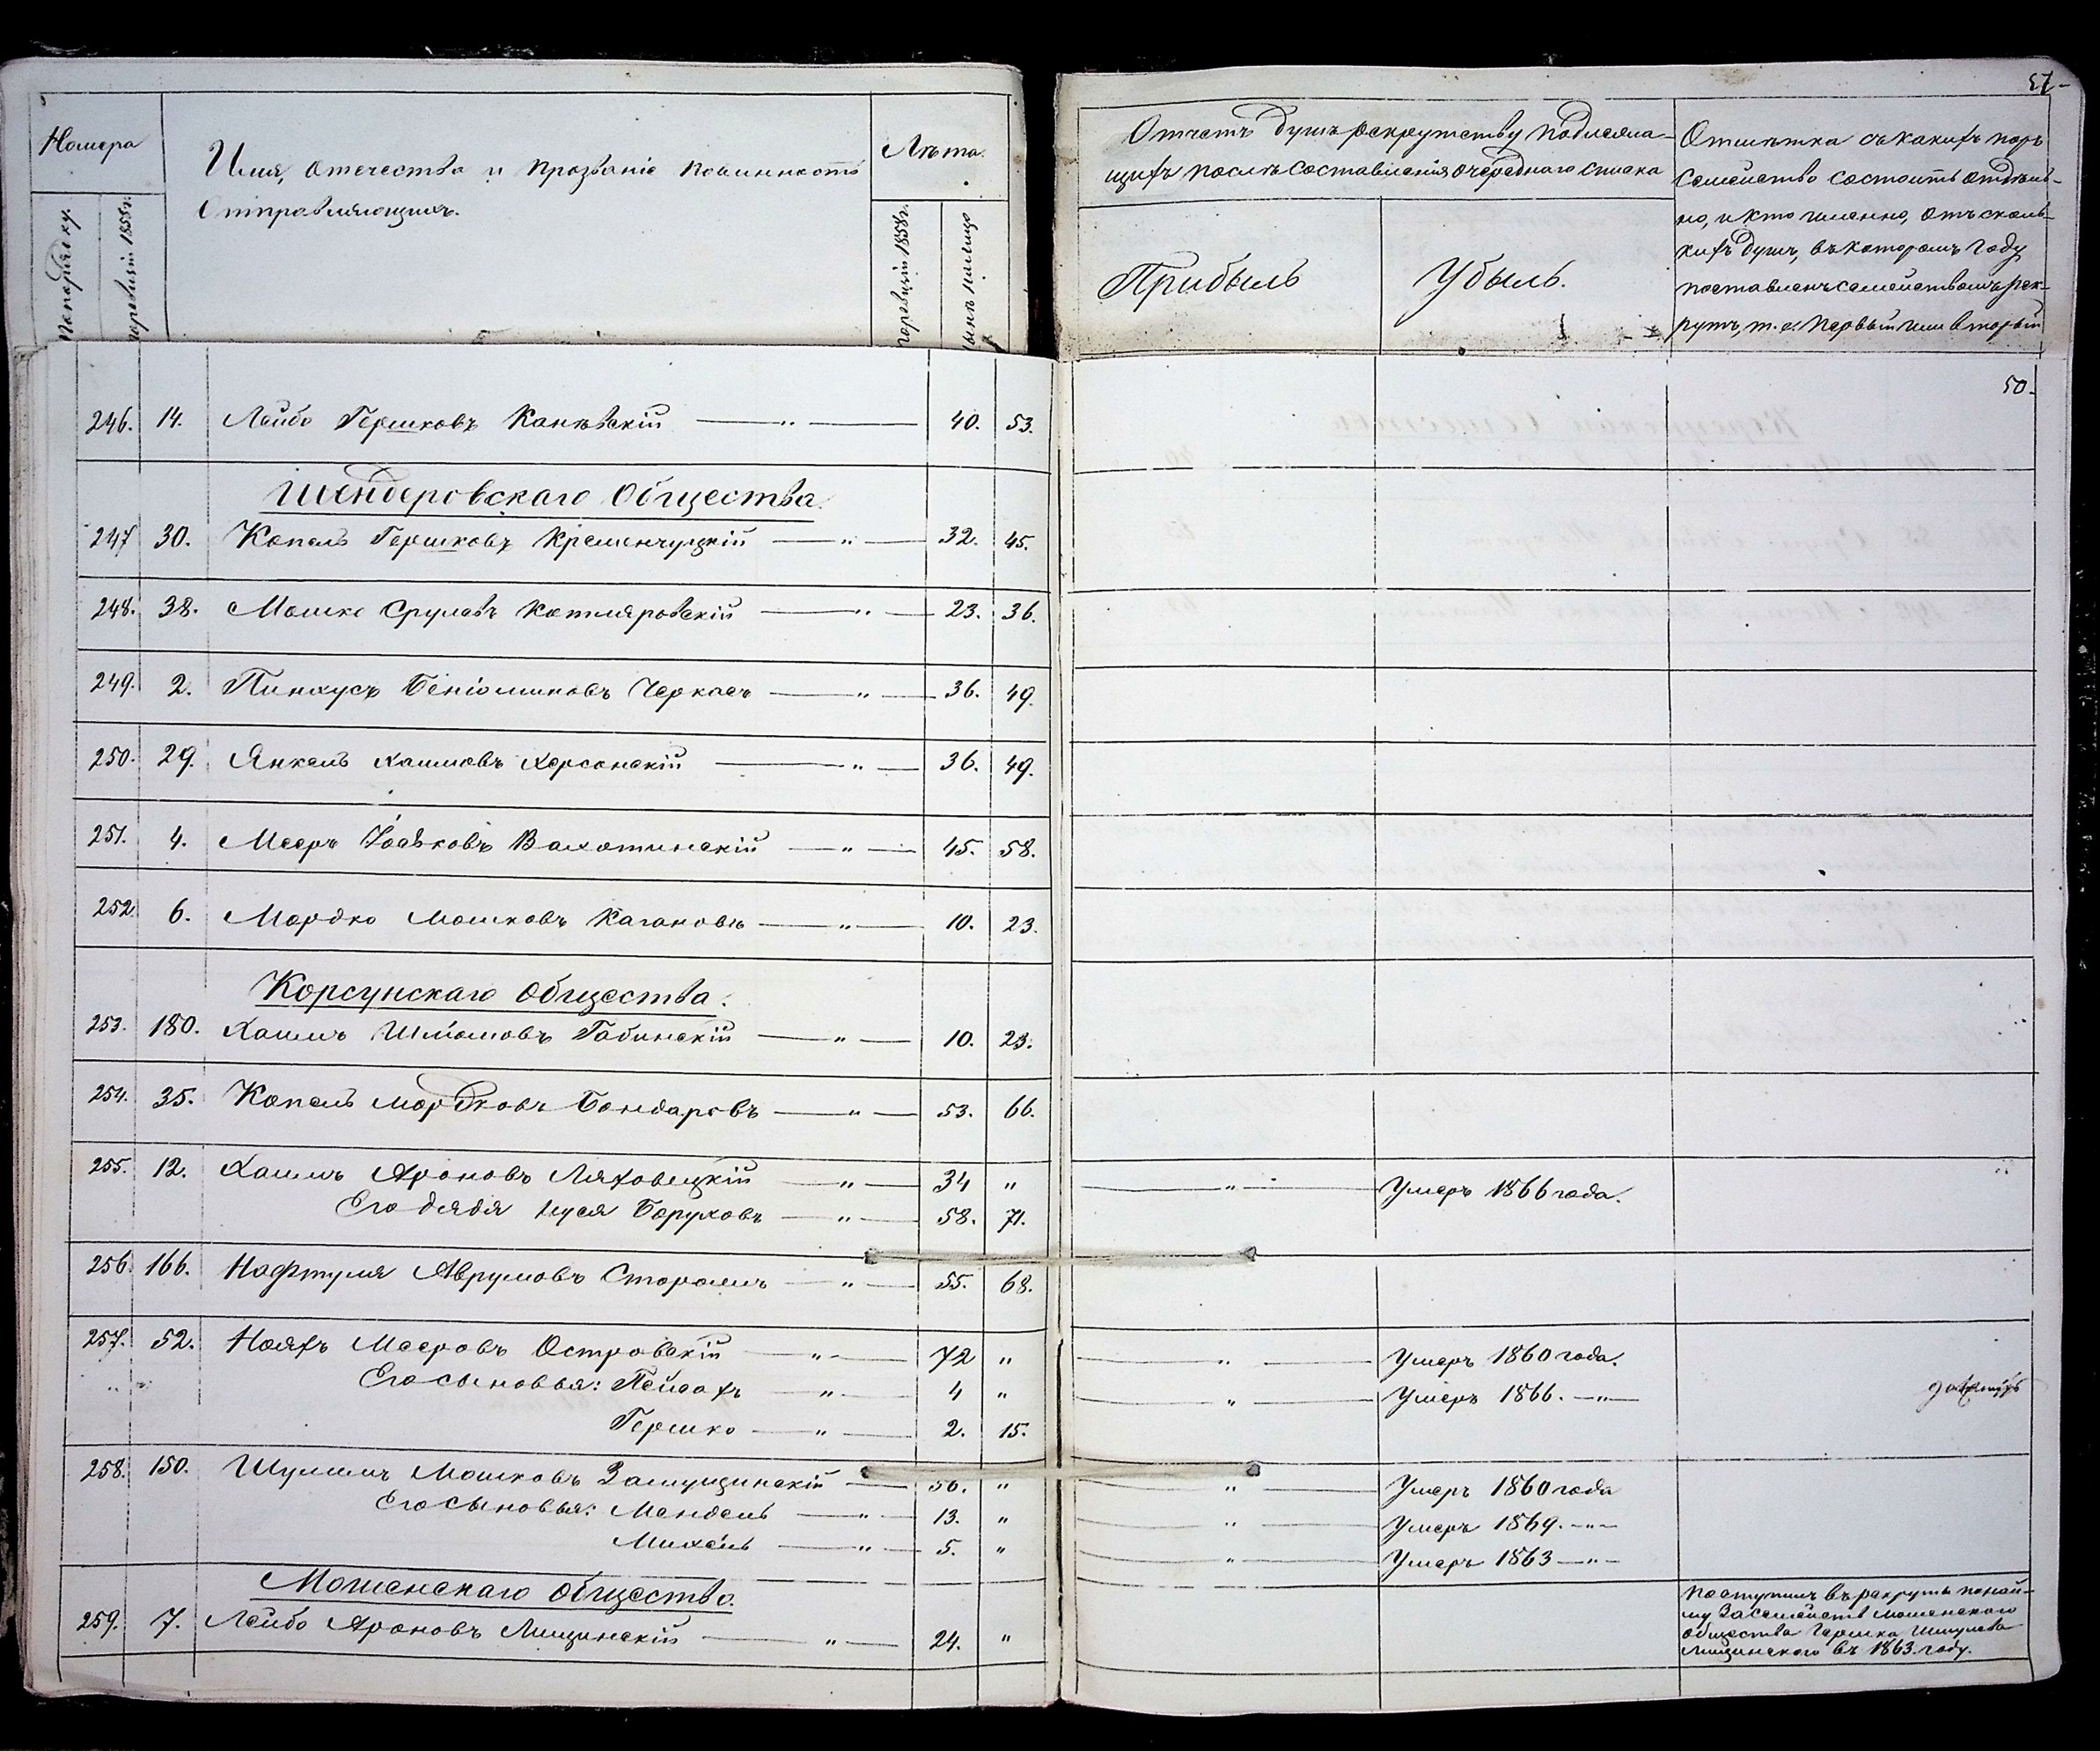 57
Номера
Имя, отечество и прозваніе повинность
отправляющихъ.
Лѣта.
по порядку.
по ревизіи 1858 г.
по ревизіи 1858 г.
нынѣ на лицо
Отчетъ душъ рекрутству подлежа-
щихъ послѣ составленія очереднаго списка
Прибыль
Убыль.
Отмѣтка съ какихъ поръ
семейство состоитъ отдѣль-
но, и кто именно, отъ сколь-
кихъ душъ, въ которомъ году
поставленъ семействомъ рек-
рутъ, т. е. первый или вторый
50.
246. 14. Лейбо Гершковъ Каневскій — „ — 40. 53.
Шендеровскаго Общества.
247 30. Копель Гершковъ Кременчуцкій — „ — 32. 45.
248. 38. Мошко Срулевъ Котляровскій — „ — 23. 36.
249. 2. Пинхусъ Беніоминовъ Черкасъ — „ — 36. 49.
250. 29. Янкель Хаимовъ Херсонскій — „ — 36. 49.
251. 4. Мееръ Іоськовъ Валотинскій — „ — 45. 58.
252. 6. Мордко Мошковъ Кагановъ — „ — 10. 23.
Корсунскаго Общества.
253. 180. Хаимъ Шліомовъ Габинскій — „ — 10. 23.
254. 35. Копель Мордковъ Бондаровъ — „ — 53. 66.
255. 12. Хаимъ Ароновъ Ляховецкій — „ — 34 „ — „ — Умеръ 1866 года.
Его дядя Нуся Боруховъ — „ — 58. 71.
256. 166. Нафтуля Аврумовъ — „ — 55. 68.
257. 52. Нояхъ Мееровъ Островскій — „ — 72 „ — „ — Умеръ 1860 года.
„ „ Его сыновья: Пейсахъ — „ — 4 „ — „ — Умеръ 1866. — „ —
Гершко — „ — 2. 15.
258. 150. Шулимъ Мошковъ Замущинскій — 56. „ — „ — Умеръ 1860 года
Его сыновья: Мендель — „ — 13. „ — „ — Умеръ 1869. — „ —
Михель — „ — 5. „ — „ — Умеръ 1863 — „ —
Мошенскаго Общества.
259. 7. Лейбо Ароновъ Лищинскій — „ — 24. „
Поступилъ въ рекруты по най-
му за семейств Мошенскаго
общества Гершка Шмулева
Лищинскаго въ 1863. году.